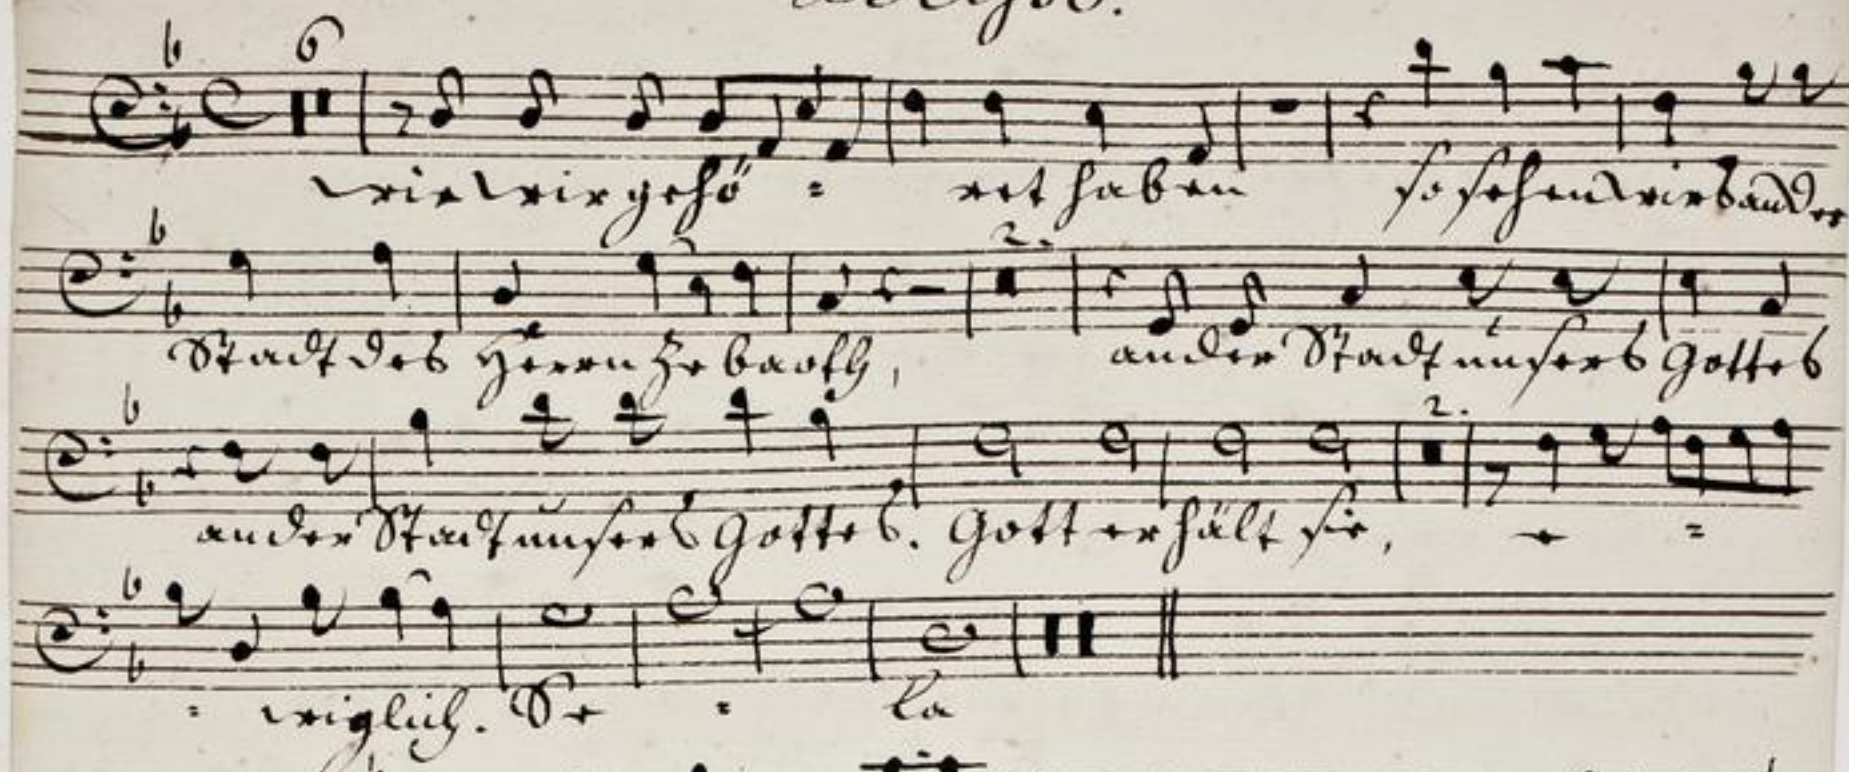 6
wie wir gehö = ret haben so sehen wirs an der
2.
Stadt des Herrn Zebaoth, an der Stadt unsers Gottes
2.
an der Stadt unsers Gottes. Gott erhält sie, e =
= wiglich. Se = la